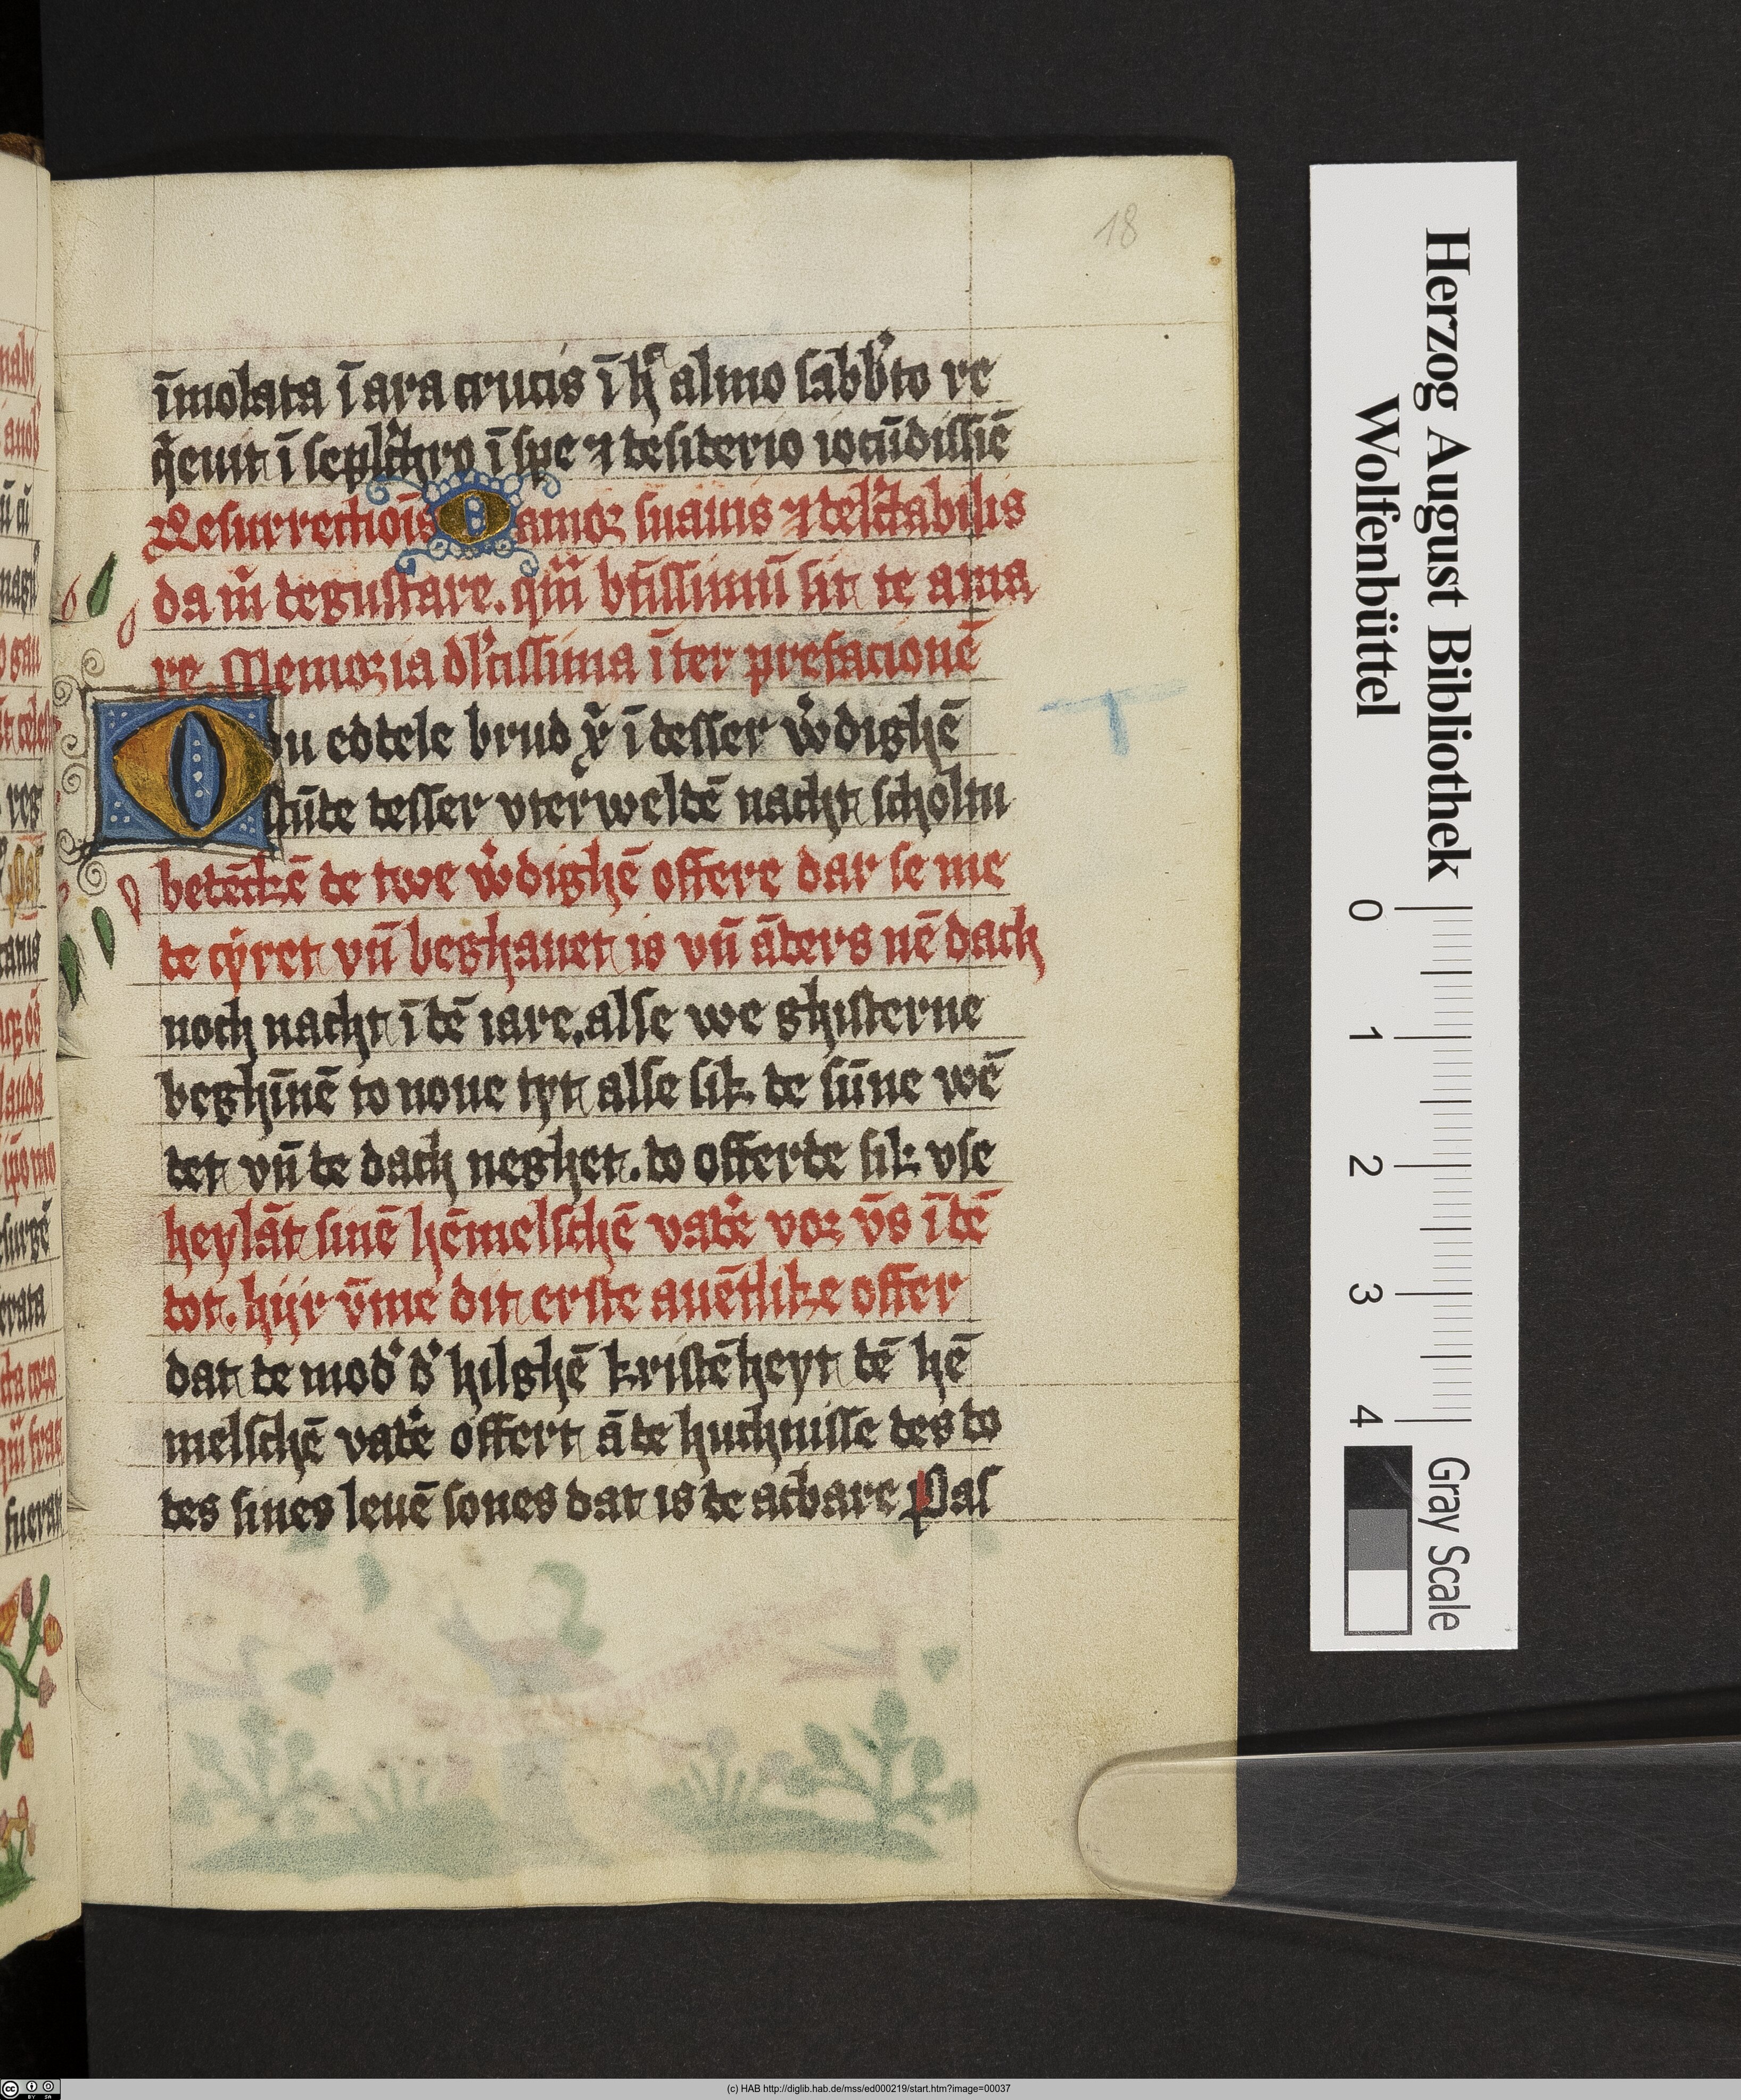 18
īmolata ī ara crucis ī h᷒ almo sabb̾to re
q̄euit ī sepl̾chro ī spe ⁊ desiderio iocūdissiē
Resurrectiōīs O amor suauis ⁊ del̾ctabilis
da m̄ degustare. qm̄ btīssimū sit te ama
re. Memoria dl̾cissima īter prefacionē
O du eddele brud xp̄i ī desser w̾dighē
stūde desser vterweldē nacht scholtu
betēckē de twe w̾dighē offere dar se me
de cẏret vn̄ beghauet is vn̄ āders nē dach
noch nacht ī dē iare. alse we ghisterne
beghīnē to noue tyt alse sik de sūne wē
det vn̄ de dach neghet. do offerde sik vse
heylāt sinē hēmelschē vad̾e vor v̄s ī dē
dot. hijr v̄me dit erste auētlike offer
dat de mod̾ d̾ hilghē kristēheyt dē hē
melschē vad̾e offert ā de huchnisse des do
des sines leuē sones dat is de acbare Pas
Herzog August Bibliothek
Wolfenbüttel
0 1 2 3 4
Gray Scale
(c) HAB http://diglib.hab.de/mss/ed000219/start.htm?image=00037